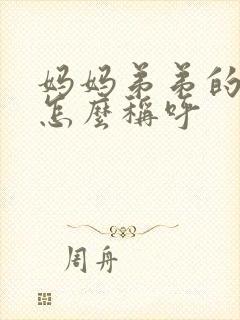 妈妈弟弟的
怎麼稱呼
周舟